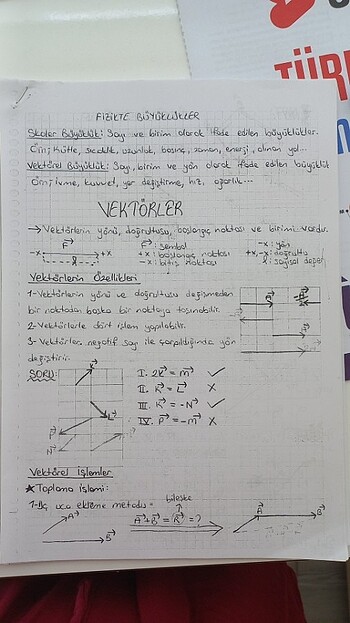 TÜR
FİZİKTE BÜYÜKLÜKLER
Skaler Büyüklük: Sayı ve birim olarak ifade edilen büyüklükler.
Örn; Kütle, sıcaklık, uzunluk, basınç, zaman, enerji, alınan yol...
Vektörel Büyüklük: Sayı, birim ve yön olarak ifade edilen büyüklük
Örn; İvme, kuvvet, yer değiştirme, hız, ağırlık...
VEKTÖRLER
→ Vektörlerin yönü, doğrultusu, başlangıç noktası ve birimi vardır.
F→ F→: sembol -x: yön
-x +x +x: başlangıç noktası +x,-x: doğrultu
-x: bitiş noktası : sayısal değer
Vektörlerin Özellikleri
1-Vektörlerin yönü ve doğrultusu değişmeden
bir noktadan başka bir noktaya taşınabilir.
2-Vektörlerle dört işlem yapılabilir.
3-Vektörler, negatif sayı ile çarpıldığında yön
değiştirir.
SORU: K→ I. 2K→ = m→ ✓
II. K→ = L→ X
L→ III. K→ = -N→ ✓
P→ IV. P→ = -m→ X
N→
Vektörel İşlemler
★Toplama İşlemi:
1-Uç uca ekleme metodu: bileşke
A→ A→+B→ = (R→) = ? A→ B→
B→